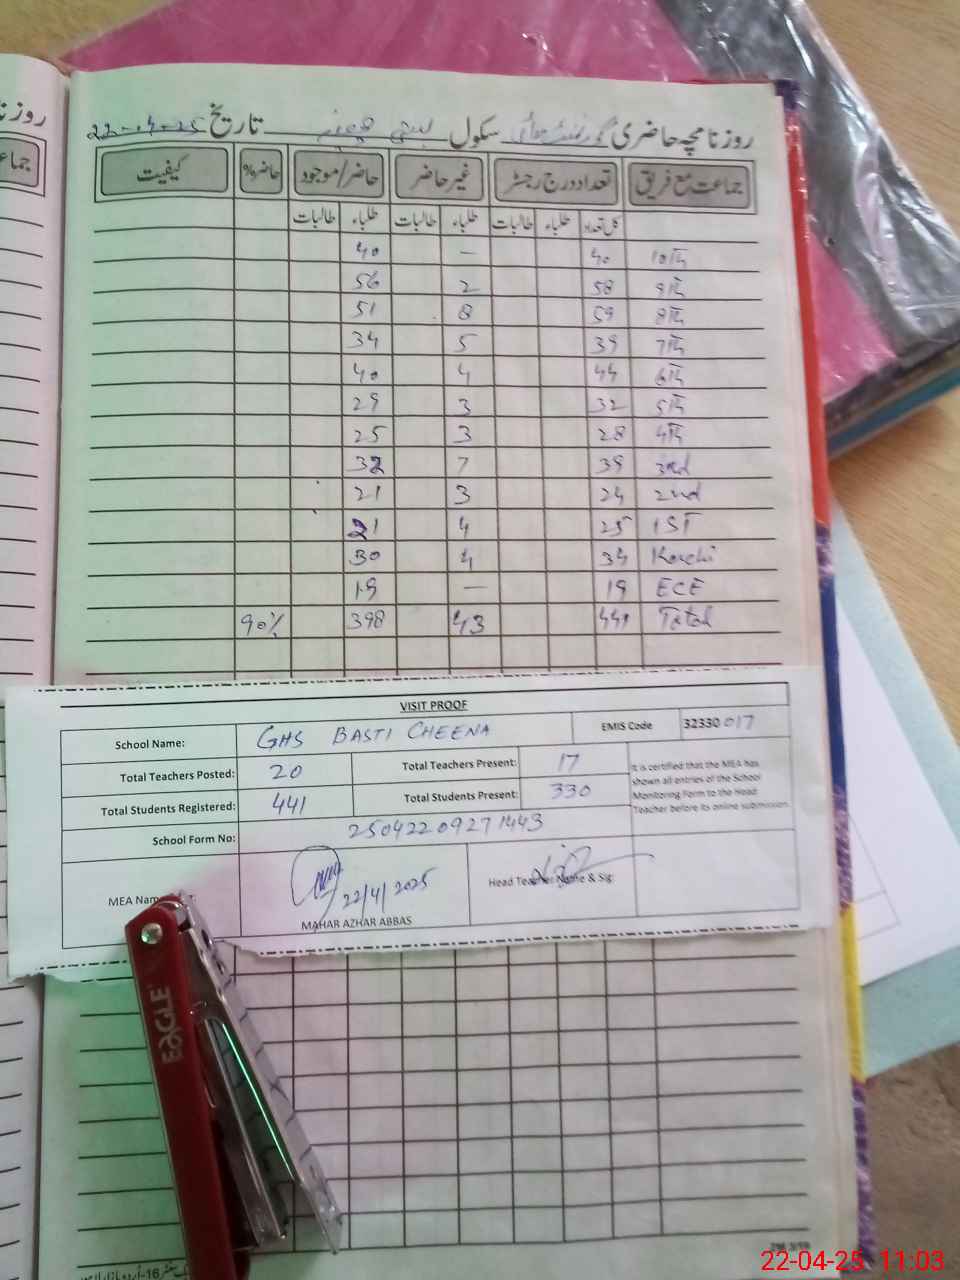 روزنامچہ حاضری گورنمنٹ ہائی سکول بستی چھینہ تاریخ 22-04-25
جماعت مع فریق تعداد درج رجسٹر غیر حاضر حاضر/موجود حاضر% کیفیت
کل تعداد طلباء طالبات طلباء طالبات طلباء طالبات
10th 40 — 40
9th 58 2 56
8th 59 8 51
7th 39 5 34
6th 44 4 40
5th 32 3 29
4th 28 3 25
3rd 39 7 32
2nd 24 3 21
1ST 25 4 21
Kachi 34 4 30
ECE 19 — 19
Total 441 43 398 90%
VISIT PROOF
School Name: GHS BASTI CHEENA EMIS Code 32330017
Total Teachers Posted: 20 Total Teachers Present: 17
Total Students Registered: 441 Total Students Present: 330
It is certified that the MEA has
shown all entries of the School
Monitoring Form to the Head
Teacher before its online submission
School Form No: 25042209271443
MEA Nam 22/4/2025 Head Teacher Name & Sig:
MAHAR AZHAR ABBAS
EAGLE
22-04-25 11:03